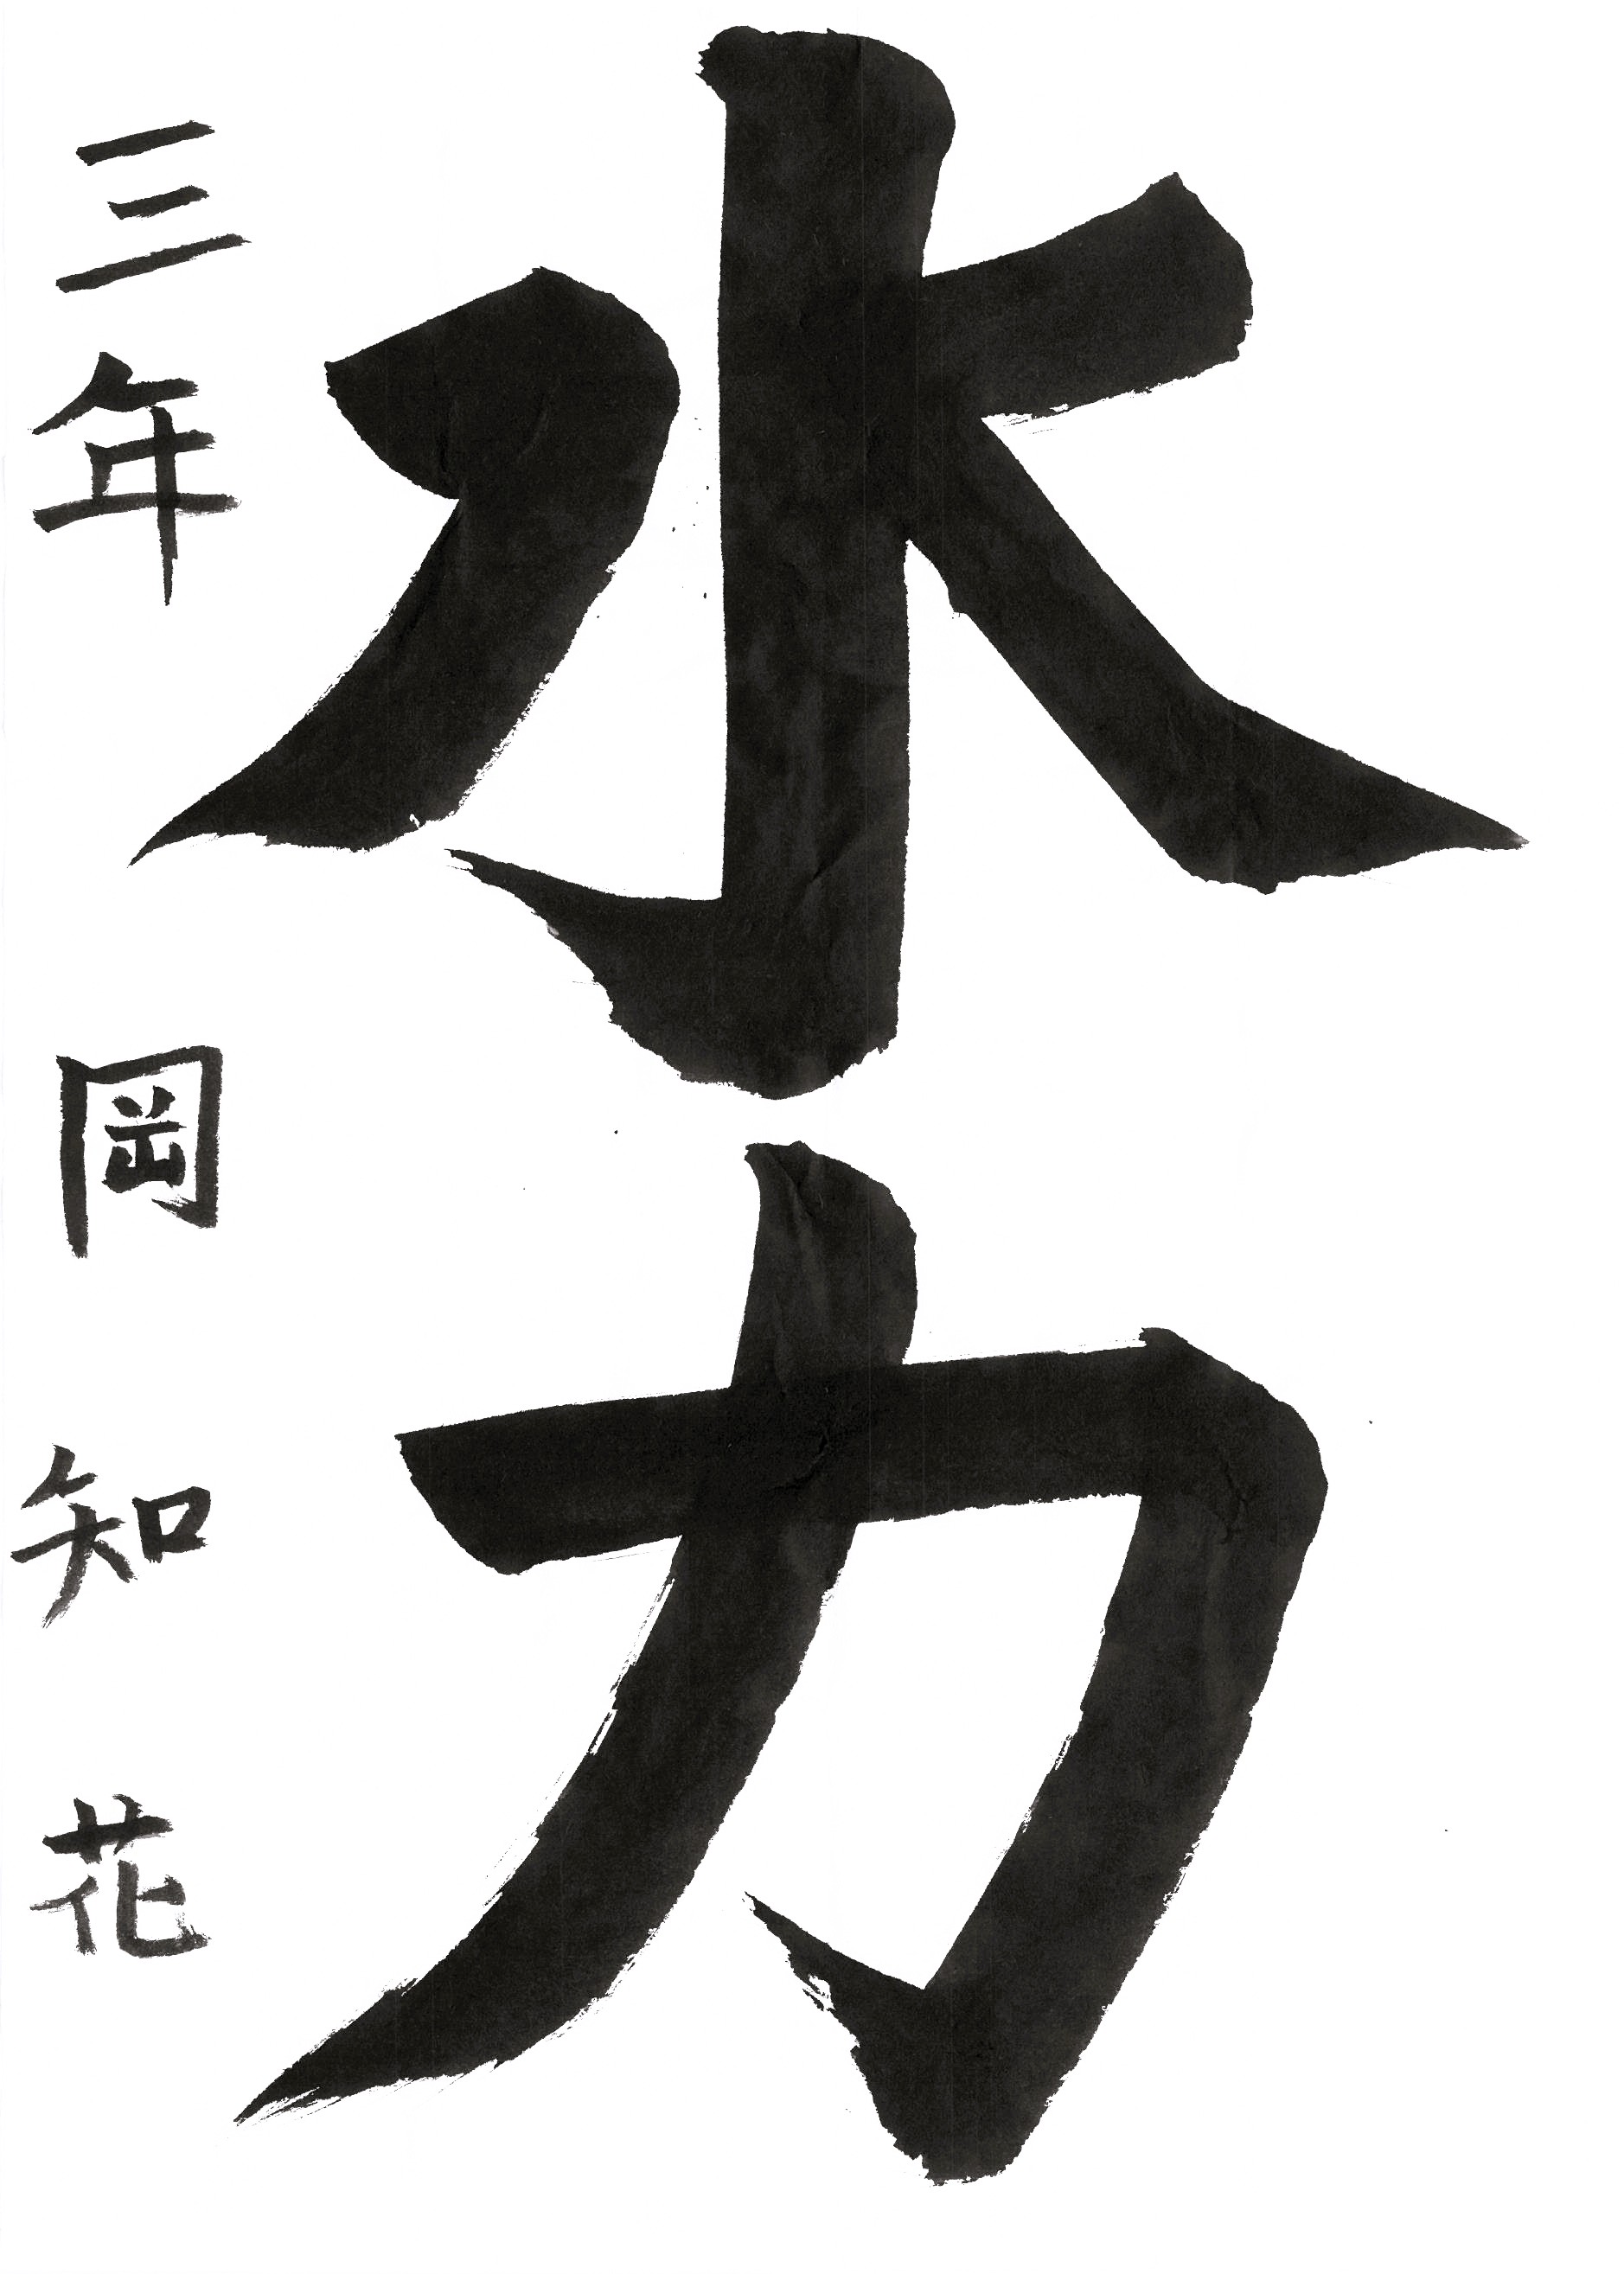 水力
三年 岡知花